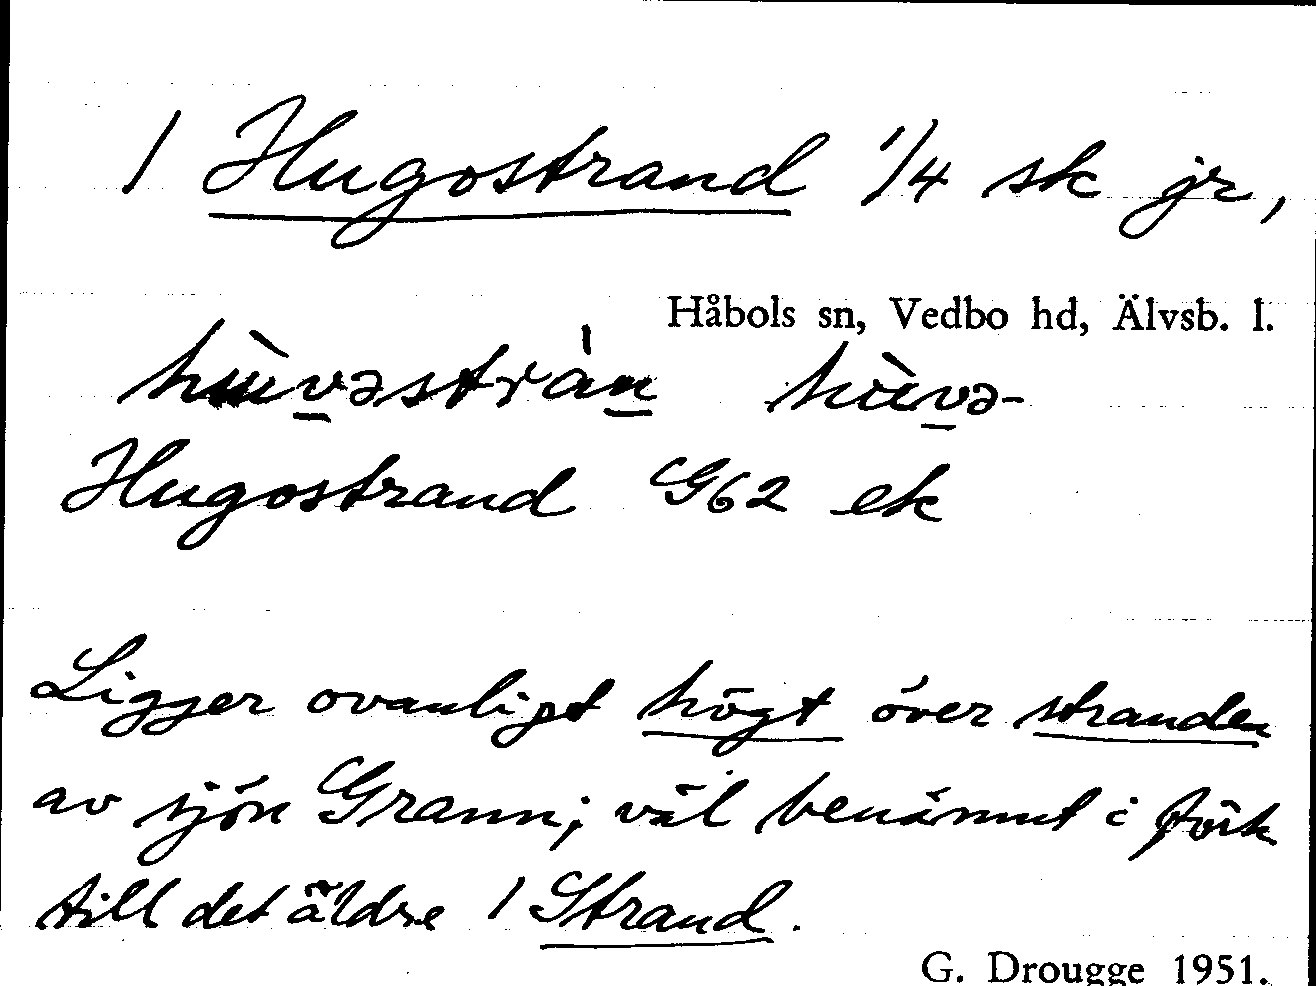 / Hugostrand 1/4 sk jr,
Håbols sn, Vedbo hd, Älvsb. l.
Hugostrand G62 ek
Ligger ovanligt högt över stranden
av sjön Grann; väl benämnt i förh
till det äldre / Strand.
G. Drougge 1951.